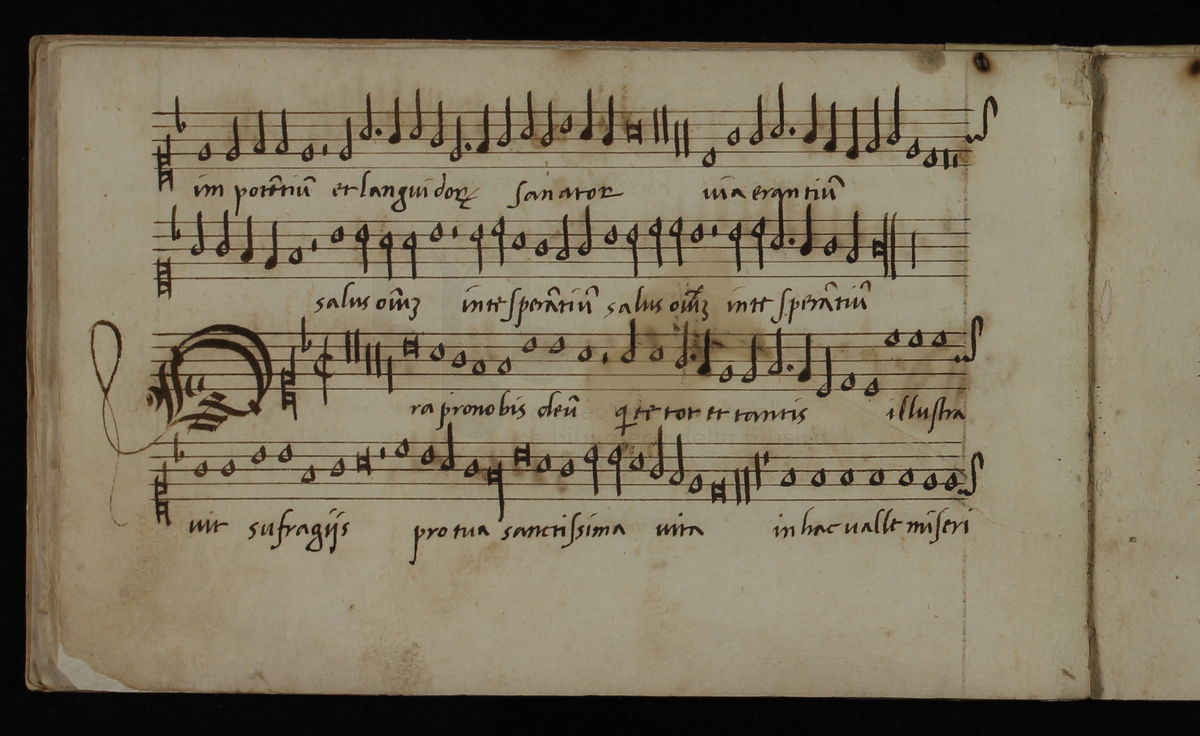 im potētiū et languidoꝝ sanator via erantiū
salus oīm̄ꝫ inte sperātiū salus oīm̄ꝫ inte sperātiū
Ora pro nobis deū qi te tot et tantis illustra
vit sufragijs pro tua sanctissima vita in hac valle miseri